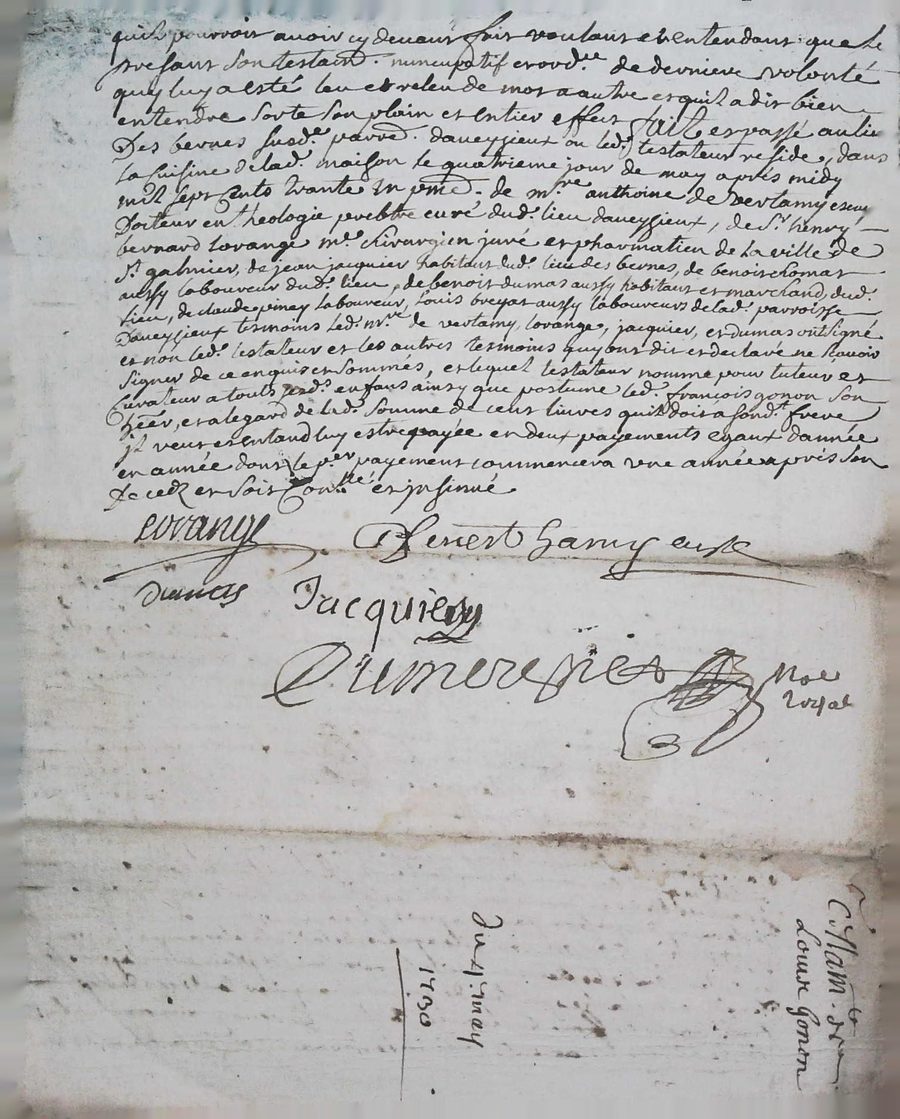 quil pourroit avoir cy devant fait voulant et entendant que le
present son testam.t nuncupatif et ord.re de derniere volonté
quy luy a esté leu et releu de mot a autre et quil a dit bien
entendre sorte son plain et entier effect fait et passé au lieu
des bernes susd.e parre. daveyzieux ou led. testateur reside, dans
la cuisine de lad. maison le quatrieme jour de may apres midy
mil sept cents trante en de m.re anthoine de vertamy
Docteur en theologie prebtre curé dud. lieu daveyzieux, de S.r henry
bernard Lorange m.e chirurgien juré et pharmatien de la ville de
S.t galmier, de jean jacquier habitant dud. lieu des bernes, de benoist
aussy laboureur dud. lieu, de benoit dumas aussy habitant et marchand, dud.
lieu, de claude pinay laboureur, Louis breyat aussy laboureurs de lad. parroisse
Daveyzieux tesmoins led. m.re de vertamy, lorange, jacquier, et dumas ont signé
et non led. testateur et les autres tesmoins quy ont dit et declaré ne scavoir
signer de ce enquis et sommés, et lequel testateur nomme pour tuteur et
Curateur a touts sesd. enfans ainsy que postume led. françois gonon son
heer, et a legard de lad. somme de cent livres quil doit a sond.t frere
jl veut et entand luy estre payée en deux payements egaux dannée
en année dont le p.er payement commencera une année apres son
decedz et soit Con.llé et jnsinué
Lorange
curé
Dumas Jacquier
No.e
royal
Du 4.e may
1730
Louise gonon